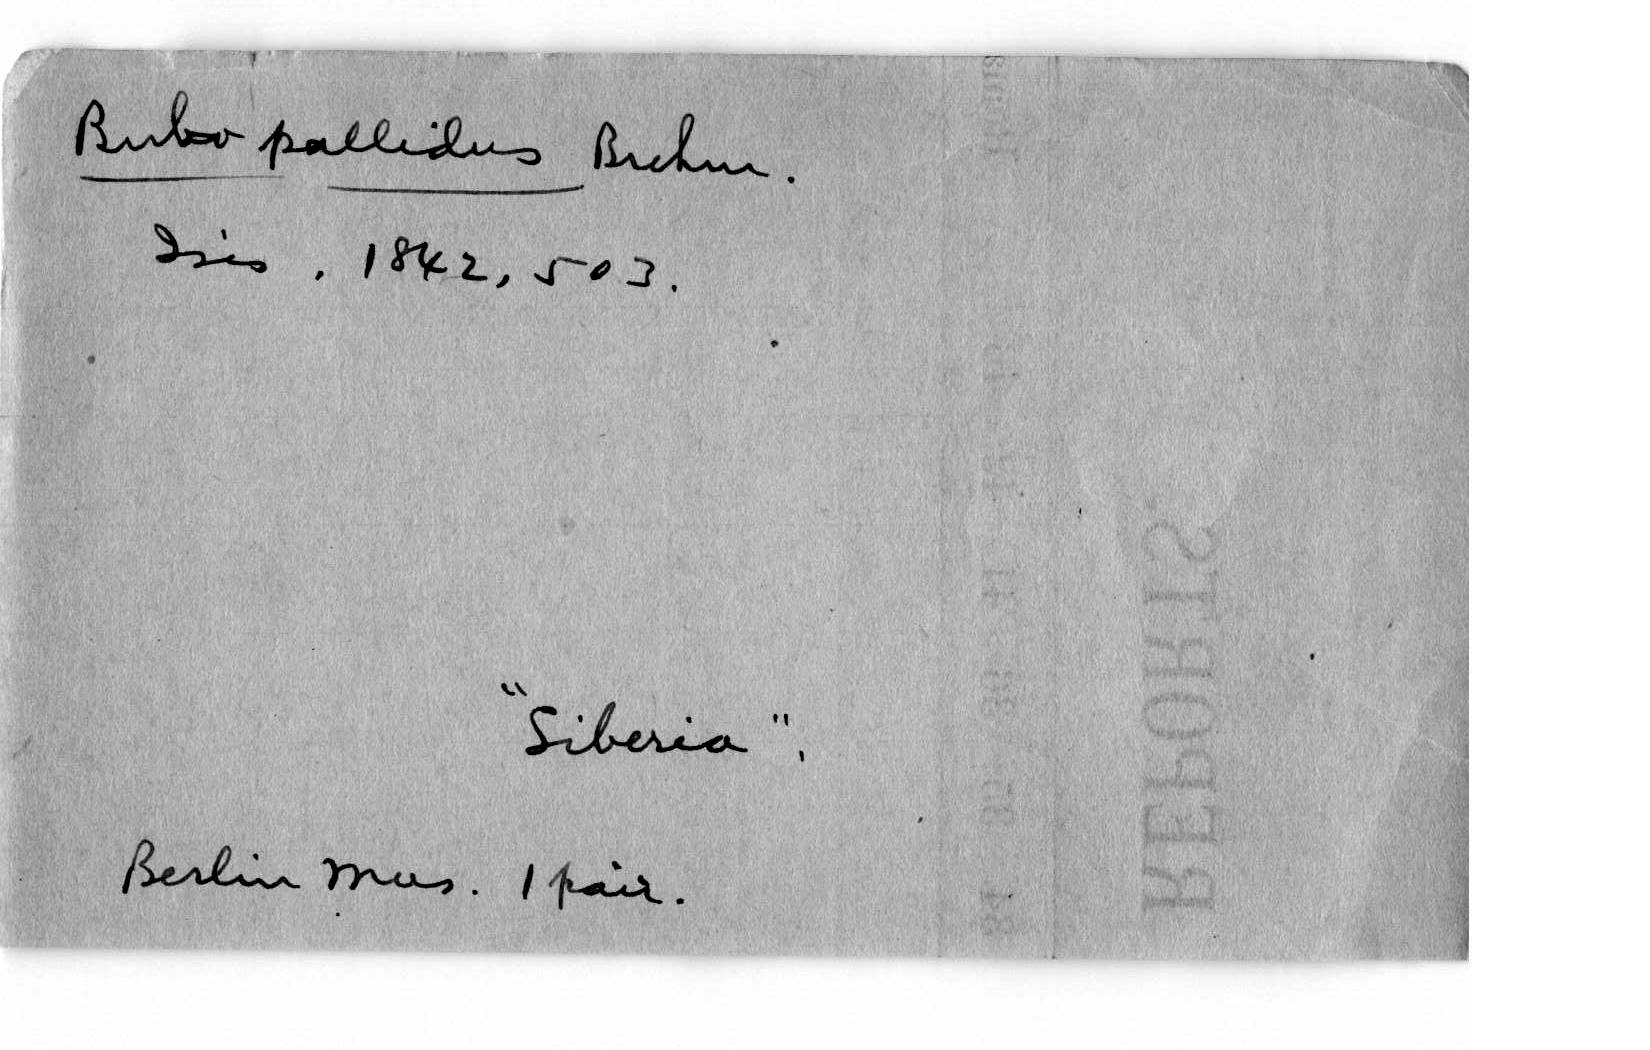 Bubo pallidus Brehm.
Isis, 1842, 503.
"Siberia".
Berlin Mus. 1 pair.
REPORTS